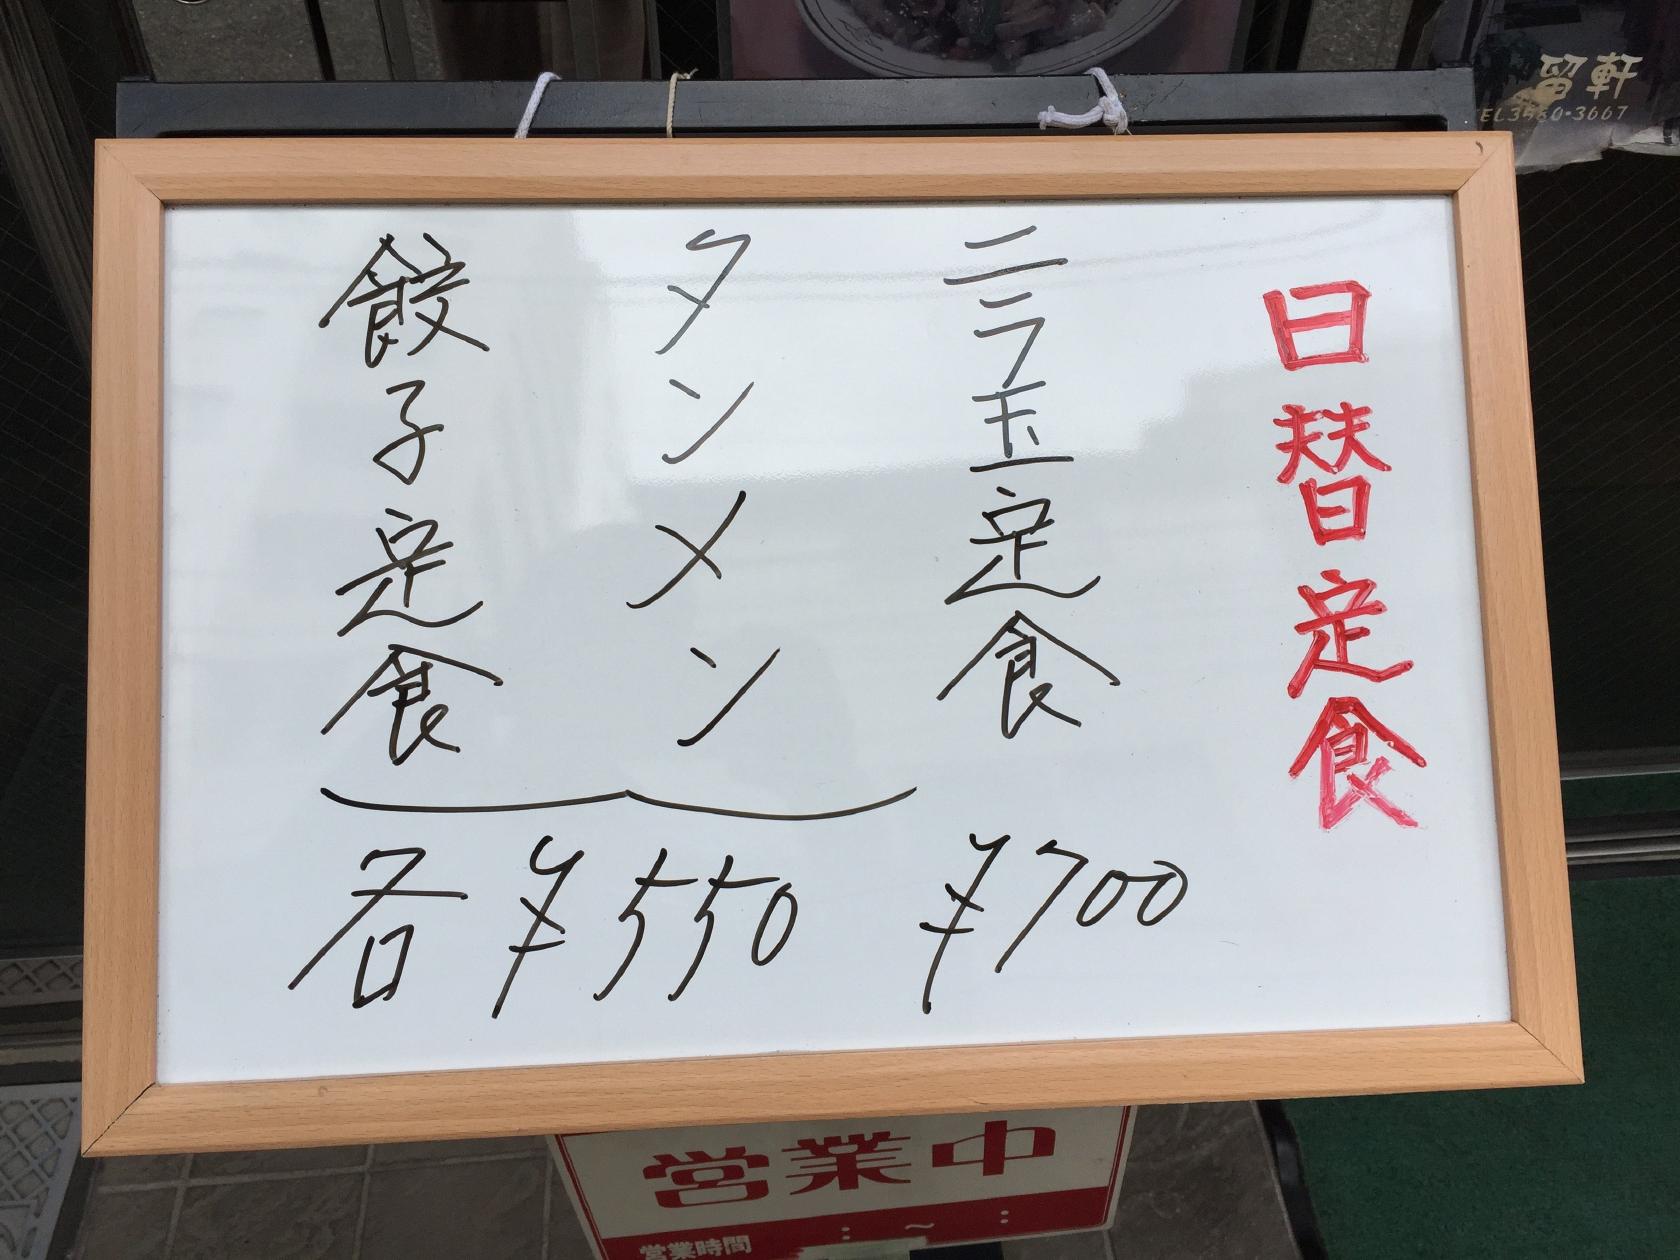 日替定食
ニラ玉定食
¥700
タンメン
餃子定食
各¥550
留軒
営業中
営業時間
: ～ :